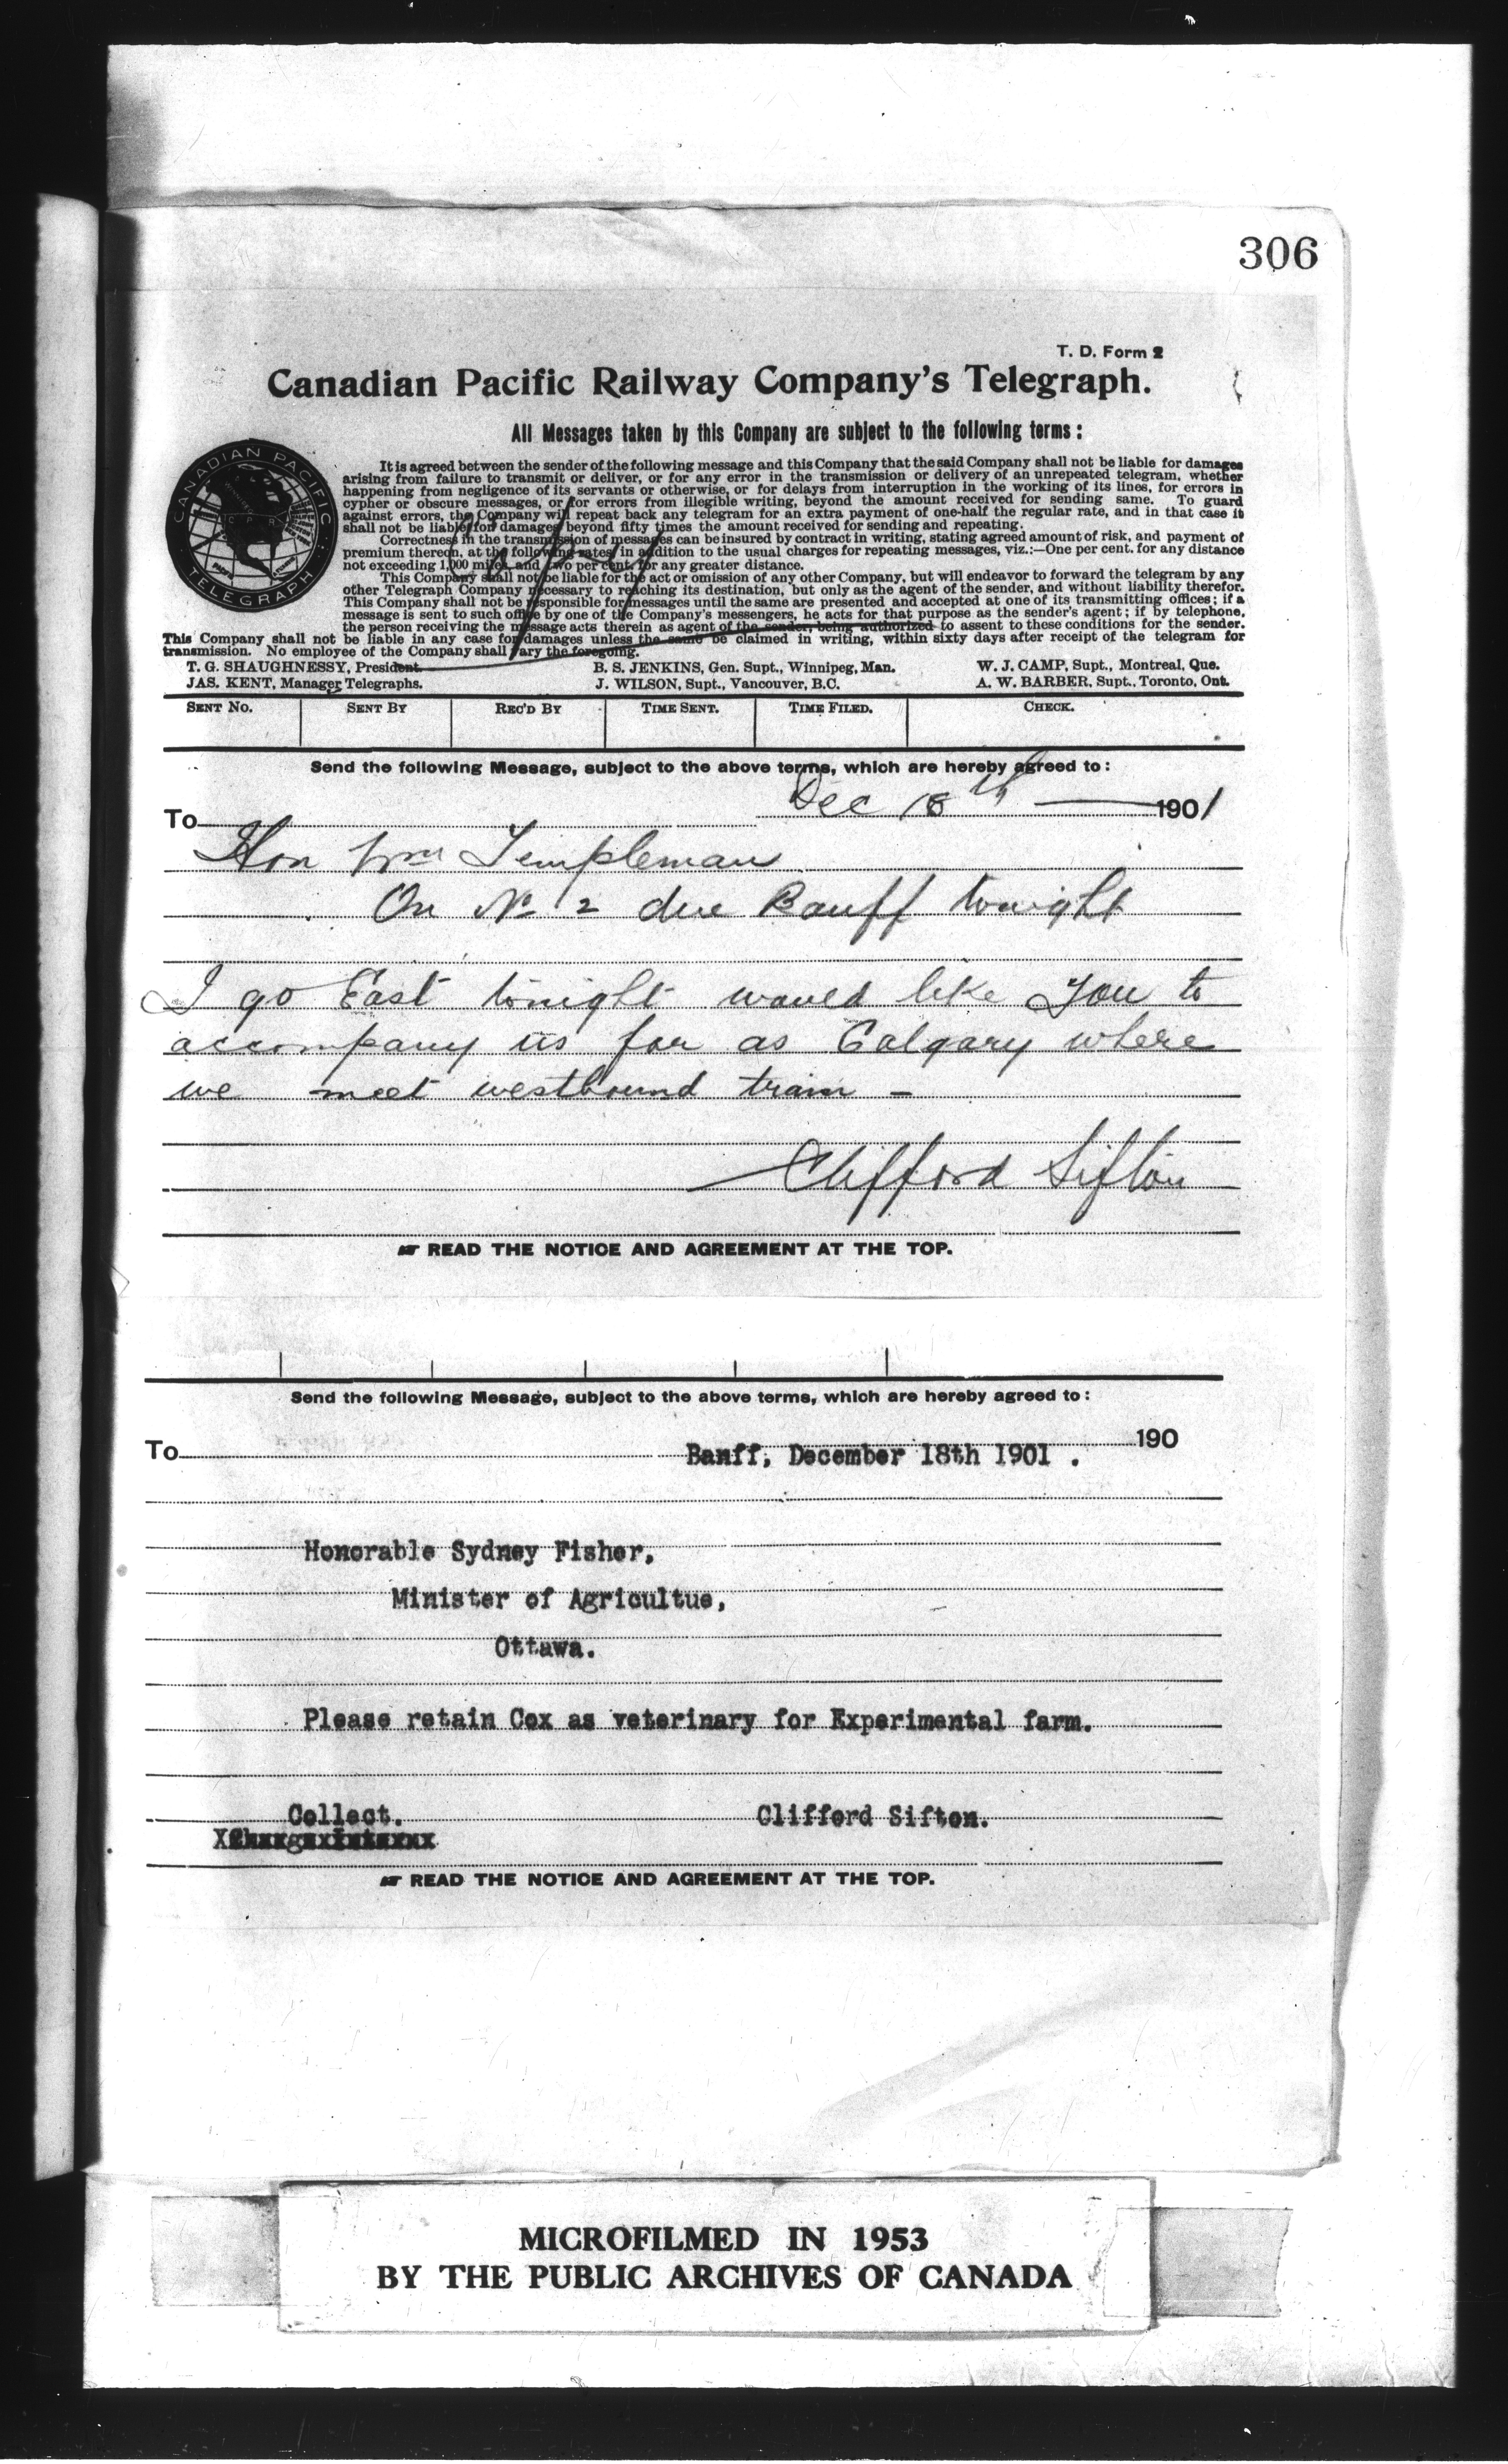 306
T. D. Form 2
Canadian Pacific Railway Company's Telegraph.
All Messages taken by this Company are subject to the following terms:
CANADIAN PACIFIC
TELEGRAPH
It is agreed between the sender of the following message and this Company that the said Company shall not be liable for damages
arising from failure to transmit or deliver, or for any error in the transmission or delivery of an unrepeated telegram, whether
happening from negligence of its servants or otherwise, or for delays from interruption in the working of its lines, for errors in
cypher or obscure messages, or for errors from illegible writing, beyond the amount received for sending same. To guard
against errors, the Company will repeat back any telegram for an extra payment of one-half the regular rate, and in that case it
shall not be liable for damages beyond fifty times the amount received for sending and repeating.
Correctness in the transmission of messages can be insured by contract in writing, stating agreed amount of risk, and payment of
premium thereon, at the following rates, in addition to the usual charges for repeating messages, viz.:—One per cent. for any distance
not exceeding 1,000 miles, and two per cent. for any greater distance.
This Company shall not be liable for the act or omission of any other Company, but will endeavor to forward the telegram by any
other Telegraph Company necessary to reaching its destination, but only as the agent of the sender, and without liability therefor.
This Company shall not be responsible for messages until the same are presented and accepted at one of its transmitting offices; if a
message is sent to such office by one of the Company's messengers, he acts for that purpose as the sender's agent; if by telephone,
the person receiving the message acts therein as agent of the sender, being authorized to assent to these conditions for the sender.
This Company shall not be liable in any case for damages unless the same be claimed in writing, within sixty days after receipt of the telegram for
transmission. No employee of the Company shall vary the foregoing.
T. G. SHAUGHNESSY, President. B. S. JENKINS, Gen. Supt., Winnipeg, Man. W. J. CAMP, Supt., Montreal, Que.
JAS. KENT, Manager Telegraphs. J. WILSON, Supt., Vancouver, B.C. A. W. BARBER, Supt., Toronto, Ont.
SENT NO. SENT BY REC'D BY TIME SENT. TIME FILED. CHECK.
Send the following Message, subject to the above terms, which are hereby agreed to:
Dec 18th 1901
To
Hon Wm Templeman
On No 2 due Banff tonight
I go East tonight would like you to
accompany us far as Calgary where
we meet westbound train -
Clifford Sifton
READ THE NOTICE AND AGREEMENT AT THE TOP.
Send the following Message, subject to the above terms, which are hereby agreed to:
To 190
Banff, December 18th 1901 .
Honorable Sydney Fisher,
Minister of Agricultue,
Ottawa.
Please retain Cox as veterinary for Experimental farm.
Collect. Clifford Sifton.
READ THE NOTICE AND AGREEMENT AT THE TOP.
MICROFILMED IN 1953
BY THE PUBLIC ARCHIVES OF CANADA